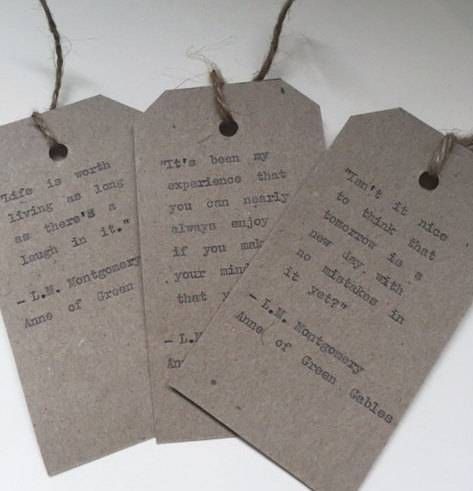 "Life is worth
living as long
as there's a
laugh in it."
- L.M. Montgomery
Anne of Green
"It's been my
experience that
you can nearly
always enjoy
if you
your
that
"Isn't it nice
to think that
tomorrow is a
new day with
no mistakes in
it yet?"
- L.M. Montgomery
Anne of
Green Gables